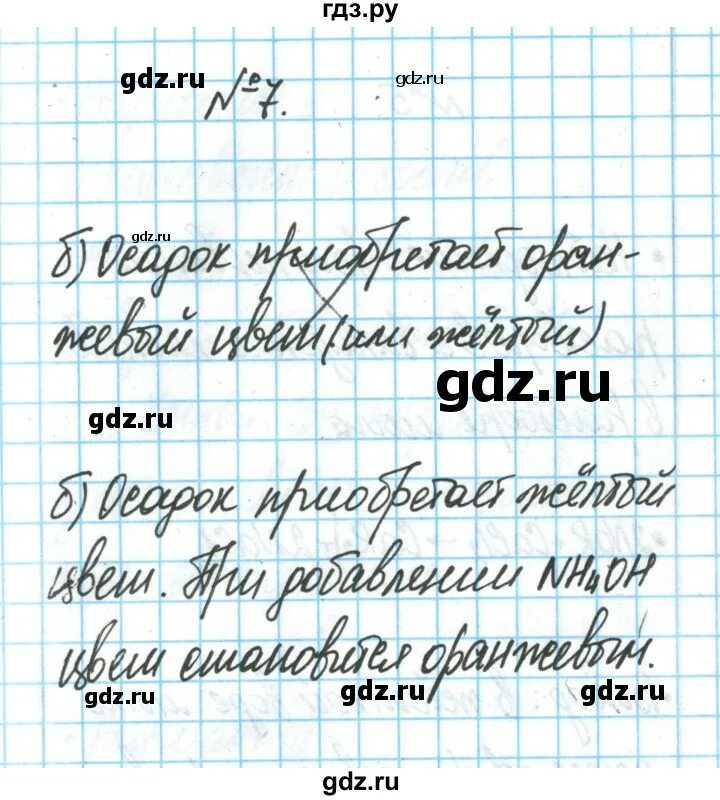 гдз.ру
gdz.ru
gdz.ru
№7.
gdz.ru
б) Осадок приобретает оран-
жевый цвет (или жёлтый)
gdz.ru
gdz.ru
б) Осадок приобретает жёлтый
цвет. При добавлении NH4OH
цвет становится оранжевым.
gdz.ru
gdz.ru
gdz.ru
gdz.ru